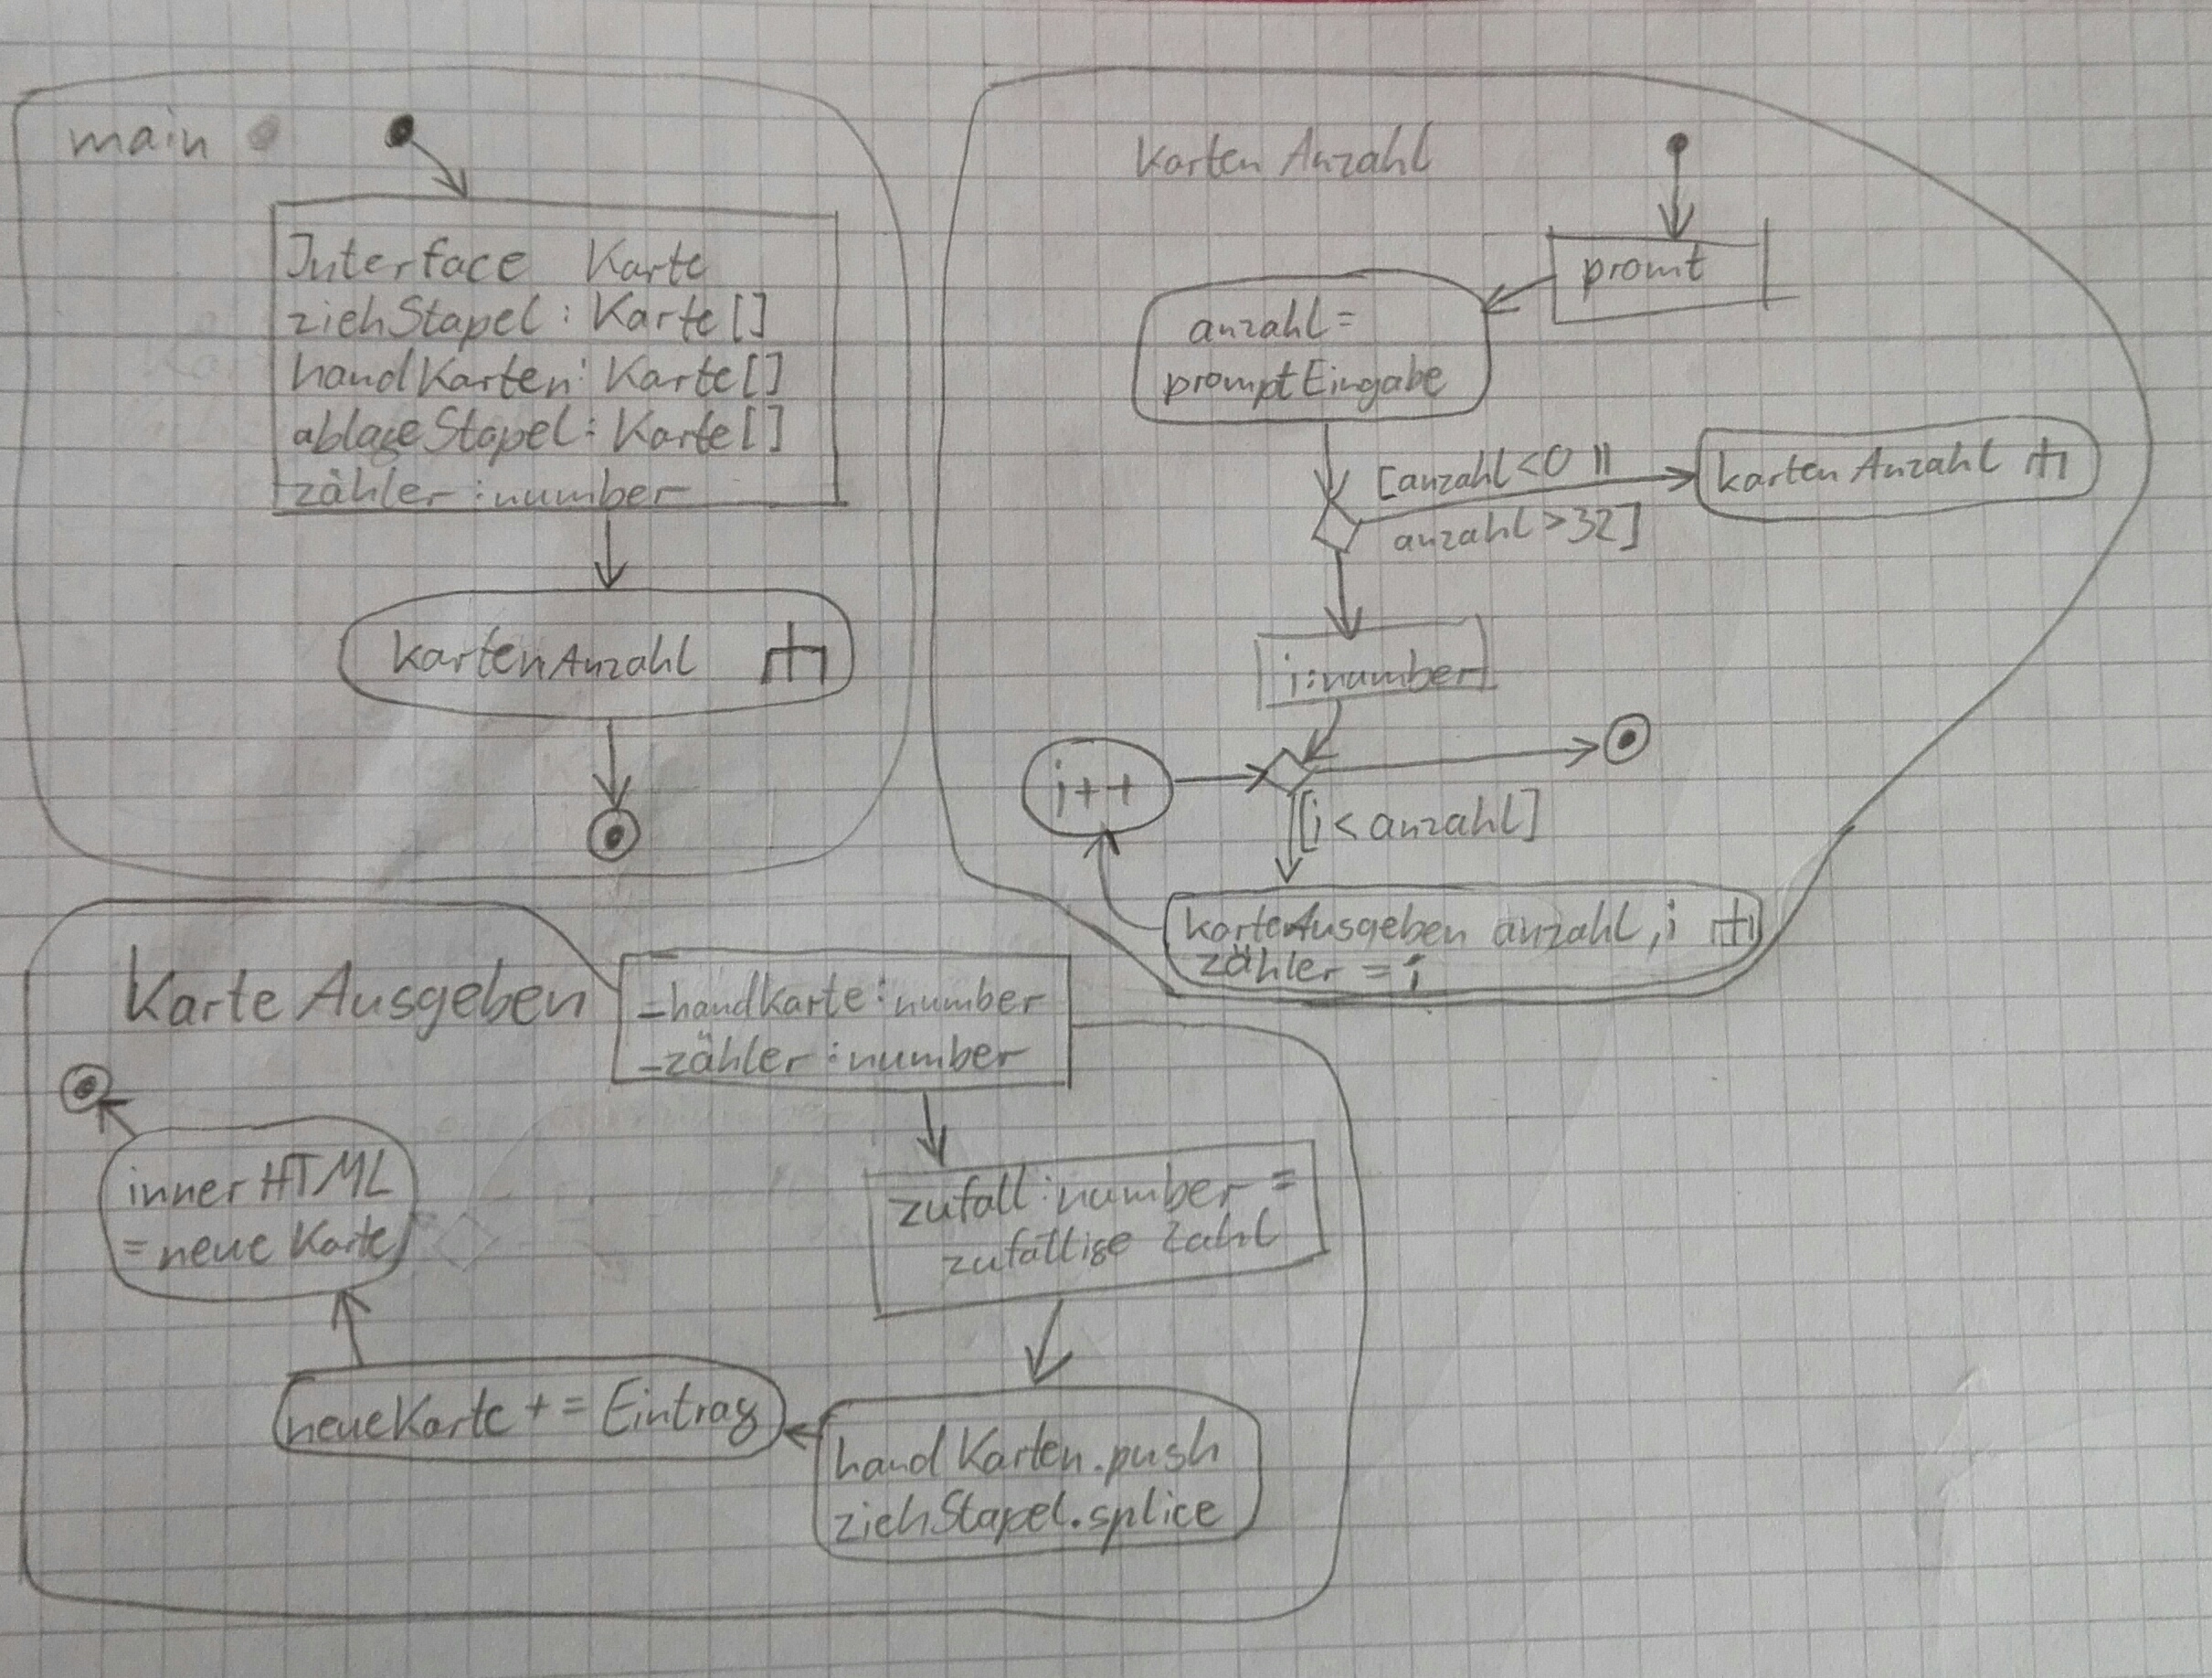 main
Interface Karte
ziehStapel : Karte[]
handKarten : Karte[]
ablageStapel : Karte[]
zähler : number
kartenAnzahl
Karten Anzahl
promt
anzahl =
promptEingabe
[anzahl < 0 ||
anzahl > 32]
karten Anzahl
i : number
i++
[i < anzahl]
karteAusgeben anzahl, i
zähler = i
Karte Ausgeben
_handkarte : number
_zähler : number
zufall : number =
zufällige Zahl
handKarten.push
ziehStapel.splice
neueKarte += Eintrag
innerHTML
= neue Karte